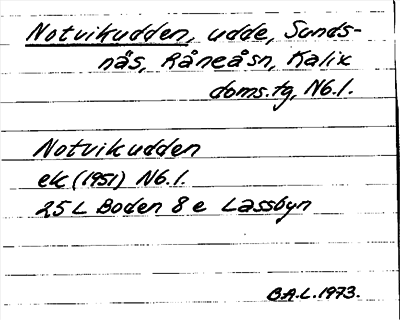 Notvikudden, udde, Sunds-
näs, Råneåsn, Kalix
doms.tg, Nb.l.
Notvikudden
ek (1951) Nb.l.
25 L Boden 8 e Lassbyn
B.A.L. 1973.